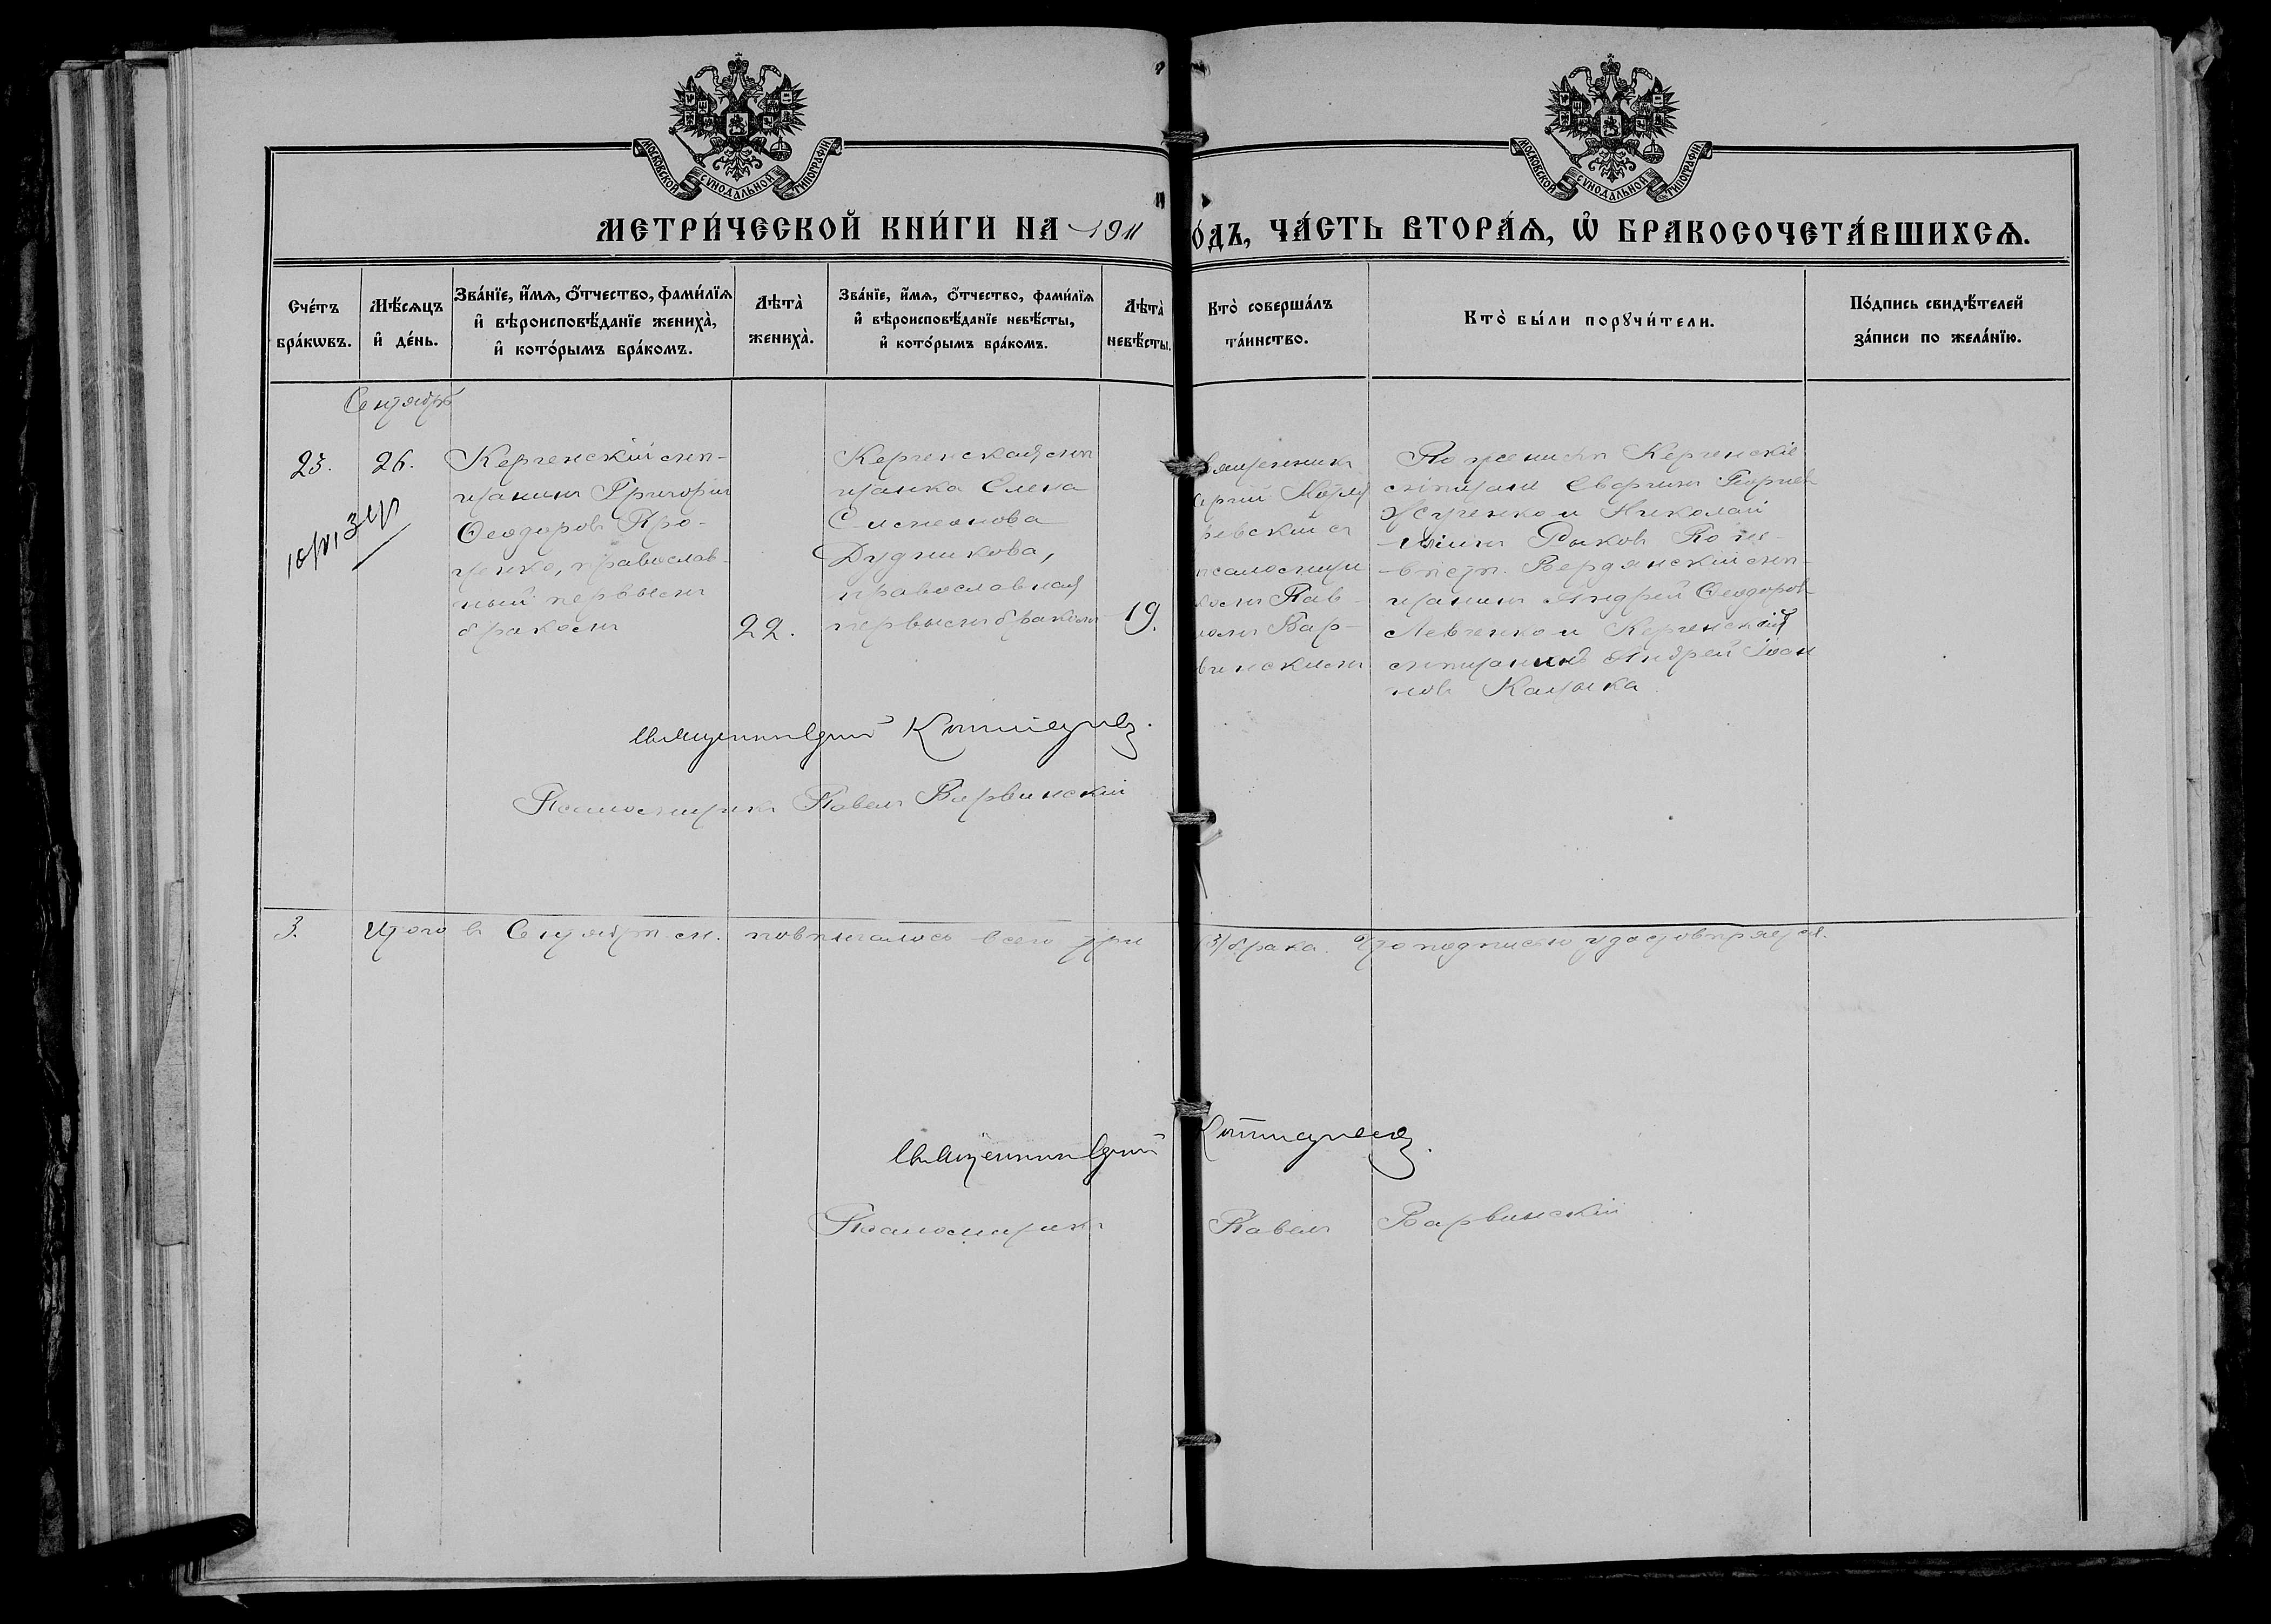 МОСКОВСКОЙ СѴНОДАЛЬНОЙ ТИПОГРАФІИ
МОСКОВСКОЙ СѴНОДАЛЬНОЙ ТИПОГРАФІИ
МЕТРИ́ЧЕСКОЙ КНИ́ГИ НА 1911
О́ДЪ, ЧА́СТЬ ВТОРА́Ѧ, Ѡ҆ БРАКОСОЧЕТА́ВШИХСѦ.
Сче́тъ бра́кѡвъ.
Мѣ́сѧцъ и҆ де́нь.
Зва́нїе, и҆́мѧ, ѻ҆́тчество, фами́лїѧ
и҆ вѣроисповѣ́данїе жениха̀,
и҆ кото́рымъ бра́комъ.
Лѣта̀ жениха̀.
Зва́нїе, и҆́мѧ, ѻ҆́тчество, фами́лїѧ
и҆ вѣроисповѣ́данїе невѣ́сты,
и҆ кото́рымъ бра́комъ.
Лѣта̀ невѣ́сты.
Кто̀ соверша́лъ
та́инство.
Кто̀ бы́ли порꙋчи́тели.
По́дпись свидѣ́телей
за́писи по жела́нїю.
Сентябрь
23.
26.
Керченскій мѣ-
щанинъ Григорій
Ѳеодоровъ Про-
ценко, православ-
ный первымъ
бракомъ
22.
Керченская мѣ
щанка Елена
Симеонова
Дудникова,
православная
первымъ бракомъ
19.
вященникъ
ергій
ревскій съ
псаломщи
комъ Пав-
ломъ Вар-
винскимъ
По женихѣ Керченскіе
мѣщане Георгіев
и Николай
Рыковъ По не-
вѣстѣ. Бердянскій мѣ-
щанинъ Андрей Ѳеодоров
Левченко и Керченскій
мѣщанинъ Андрей Іоан
новъ
Священникъ
Псаломщикъ Павелъ Варвинскій
3.
Итого въ Сентябрѣ м. повѣнчалось всего три
(3) брака. Что подписью удостовѣряется.
Священникъ
Псаломщикъ Павелъ Варвинскій